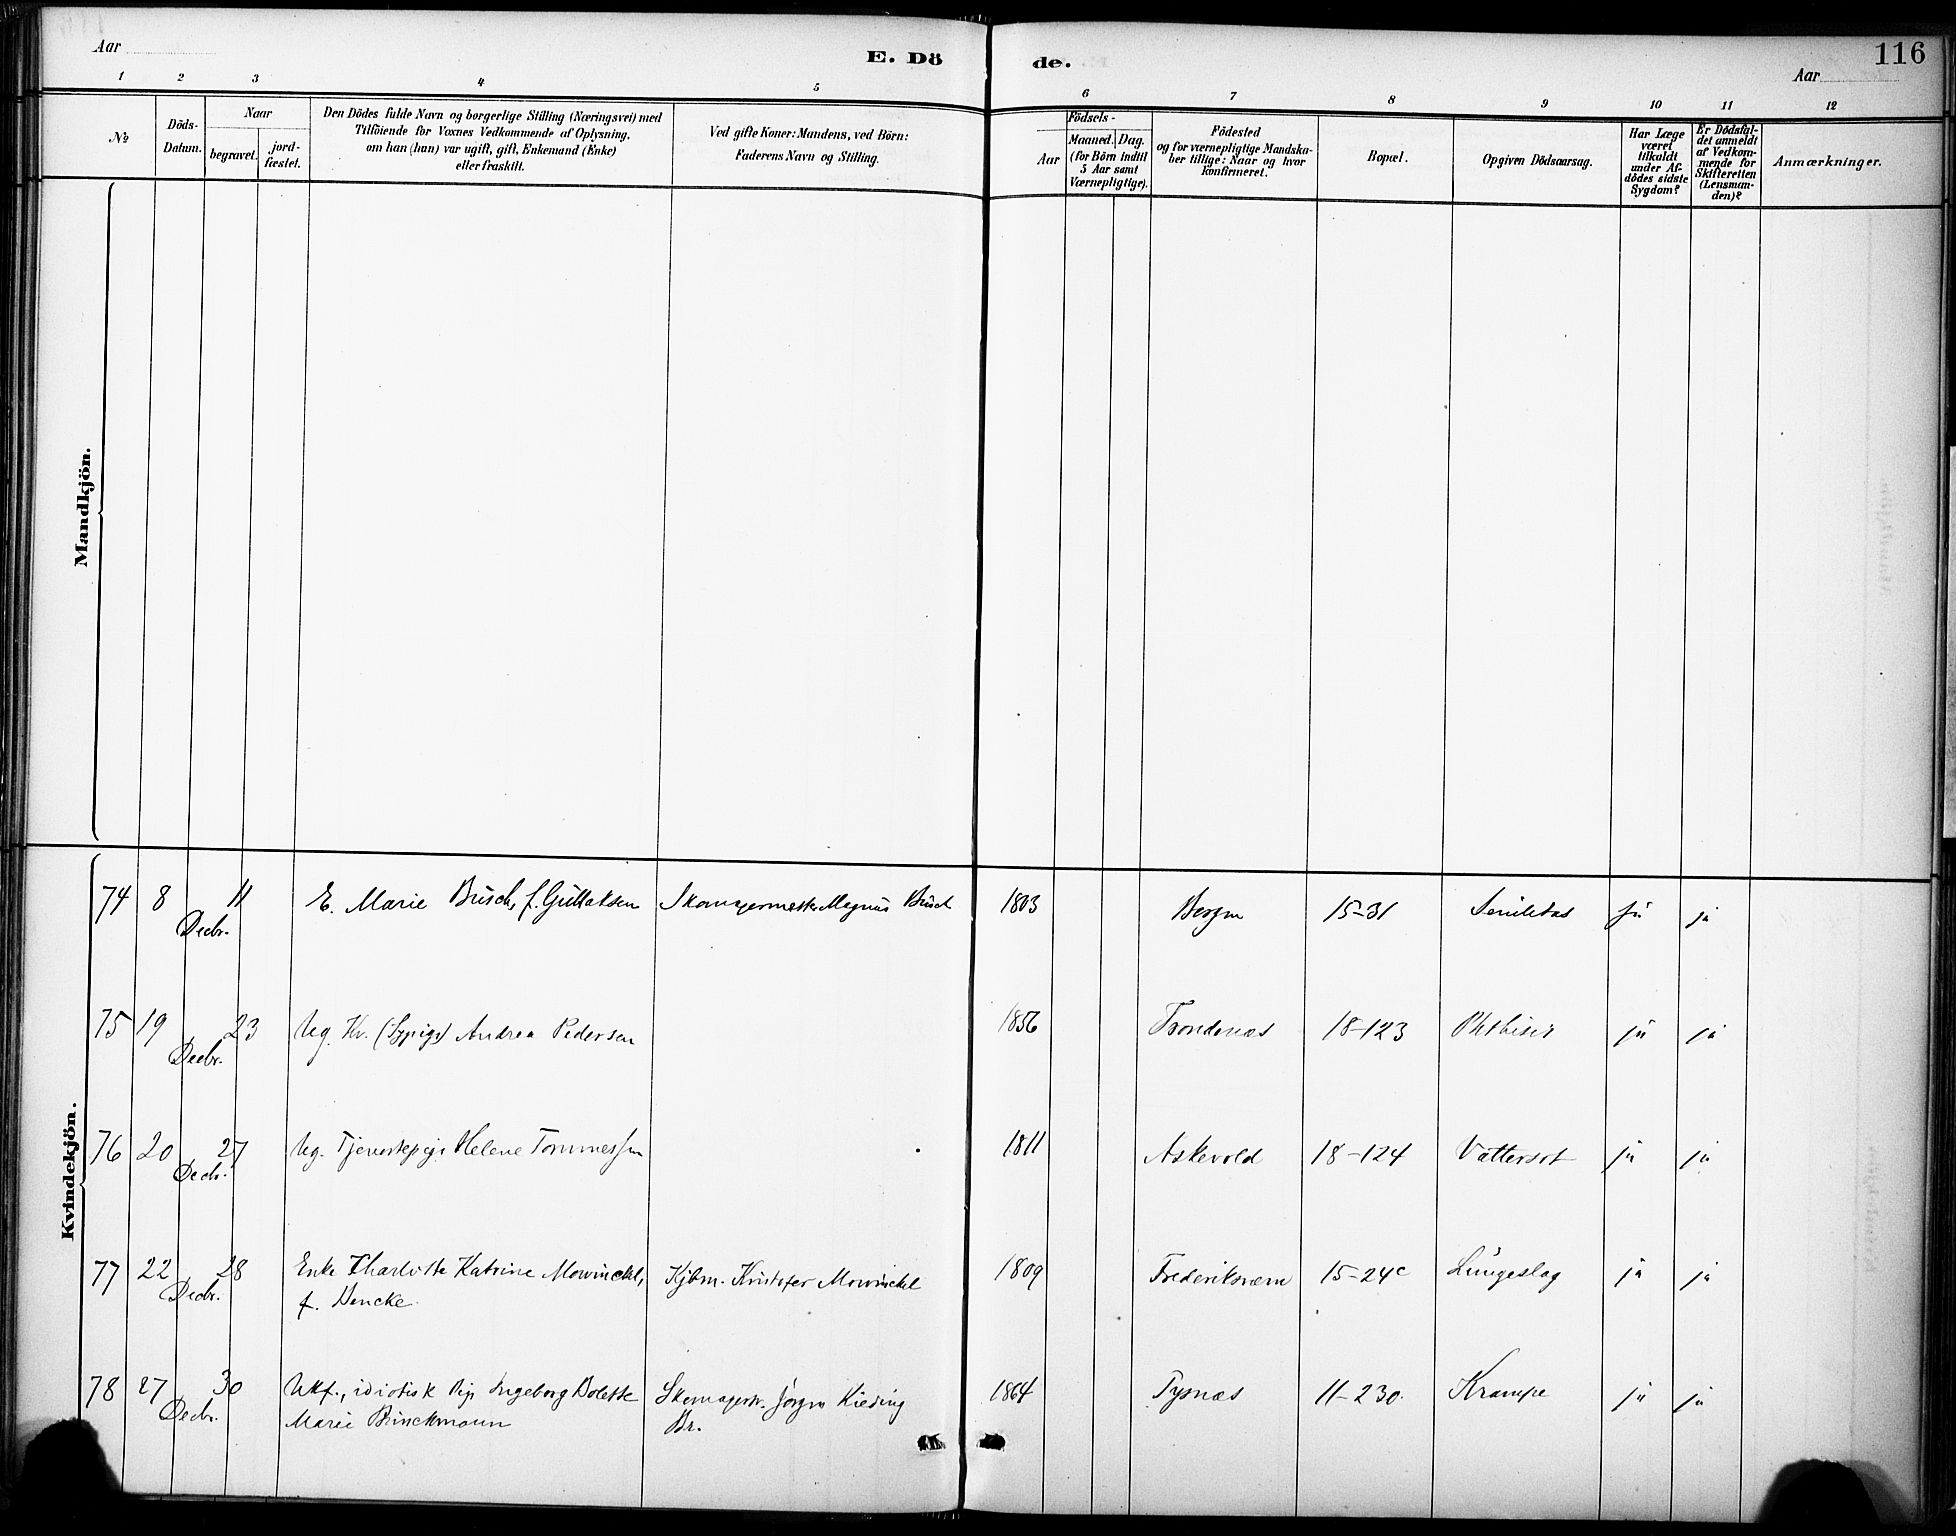 116
Aar
E. Dö
de.
Aar
1 2 3 4 5 6 7 8 9 10 11 12
№
Döds-
Datum.
Naar
begravet.
jord-
fæstet.
Den Dödes fulde Navn og borgerlige Stilling (Næringsvei) med
Tilföiende for Voxnes Vedkommende af Oplysning,
om han (hun) var ugift, gift, Enkemand (Enke)
eller fraskilt.
Ved gifte Koner: Mandens, ved Börn:
Faderens Navn og Stilling.
Födsels-
Aar
Maaned. Dag.
(for Börn indtil
5 Aar samt
Værnepligtige).
Födested
og for værnepligtige Mandska-
ber tillige: Naar og hvor
konfirmeret.
Bopæl.
Opgiven Dödsaarsag.
Har Læge
været
tilkaldt
under Af-
dödes sidste
Sygdom?
Er Dödsfal-
det anmeldt
af Vedkom-
mende for
Skifteretten
(Lensman-
den)?
Anmærkninger.
Mandkjön.
Kvindekjön.
74 8 11 E. Marie Busch, f. Gullaksen Skomagermester Magnus Busch 1803 Bergen 15-31 Senilitas ja ja
Decbr.
75 19 23 Ug. Kv. (Sypige) Andrea Pedersen 1856 Trondenæs 18-123 Phthisis ja ja
Decbr.
76 20 27 Ug. Tjenestepige Helene Tommessen 1811 Askevold 18-124 Vattersot ja ja
Decbr.
77 22 28 Enke Charlotte Katrine Mowinckel, Kjbm. Kristofer Mowinckel 1809 Frederiksværn 15-24c Lungeslag ja ja
Decbr. f. Dencke.
78 27 30 Ukf., idiotisk Pige Ingeborg Bolette Skomagerm. Jörgen Kieding 1864 Tysnæs 11-230. Krampe ja ja
Decbr. Marie Brinckmann Br.